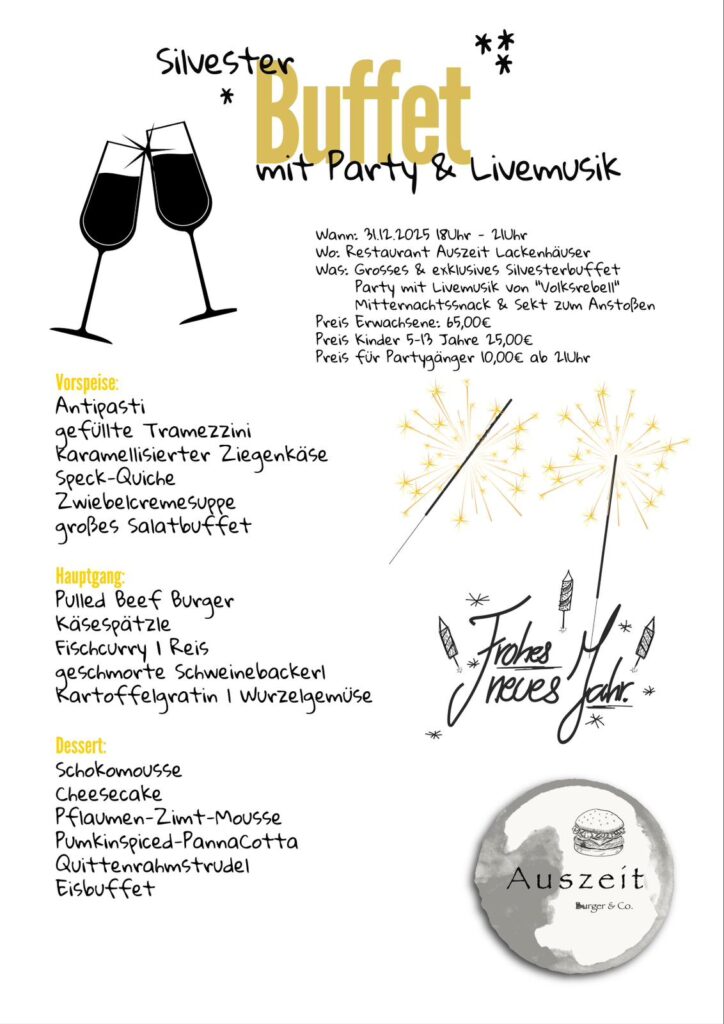 Silvester
Buffet
mit Party & Livemusik
Wann: 31.12.2025 18Uhr - 21Uhr
Wo: Restaurant Auszeit Lackenhäuser
Was: Grosses & exklusives Silvesterbuffet
Party mit Livemusik von "Volksrebell"
Mitternachtssnack & Sekt zum Anstoßen
Preis Erwachsene: 65,00€
Preis Kinder 5-13 Jahre 25,00€
Preis für Partygänger 10,00€ ab 21Uhr
Vorspeise:
Antipasti
gefüllte Tramezzini
Karamellisierter Ziegenkäse
Speck-Quiche
Zwiebelcremesuppe
großes Salatbuffet
Hauptgang:
Pulled Beef Burger
Käsespätzle
Fischcurry | Reis
geschmorte Schweinebackerl
Kartoffelgratin | Wurzelgemüse
Frohes
neues Jahr.
Dessert:
Schokomousse
Cheesecake
Pflaumen-Zimt-Mousse
Pumkinspiced-PannaCotta
Quittenrahmstrudel
Eisbuffet
Auszeit
Burger & Co.